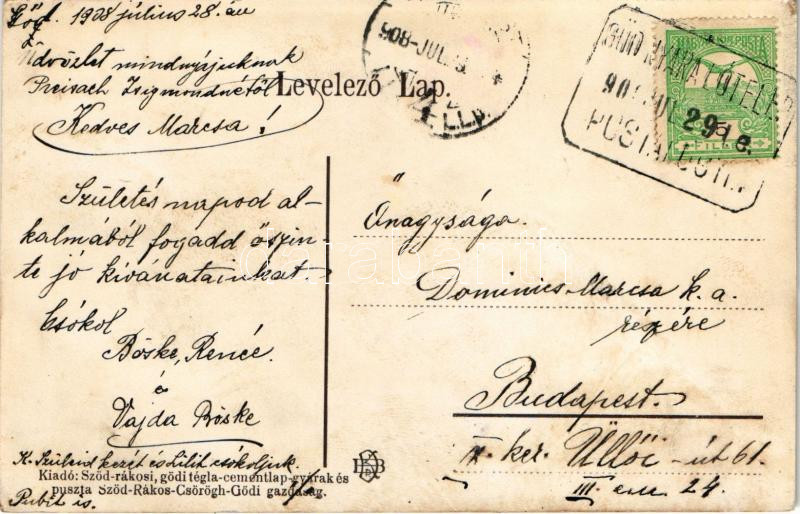 Göd, 1908 július 28.-án
Üdvözlet mindnyájuknak
Preisach Zsigmondnétól
Levelező Lap.
Kedves Marcsa!
908 JUL.
GÖDNYARALÓTELEP
908 JUL 29
POSTAI
MAGYAR KIR. POSTA
FILLÉR
Születés napod al-
kalmából fogadd őszin
te jó kivánatainkat
Csókol
Böske, Renée.
é
Vajda Böske
Őnagysága.
Dominics Marcsa k. a.
részére
Budapest.
IX. ker. Üllői-út 61.
III. em. 24.
K. Szüleid kezét és Lilit csókoljuk
Kiadó: Sződ-rákosi, gödi tégla-cementlap-gyárak és
puszta Sződ-Rákos-Csörögh-Gödi gazdaság.
Pubit is.
darabanth